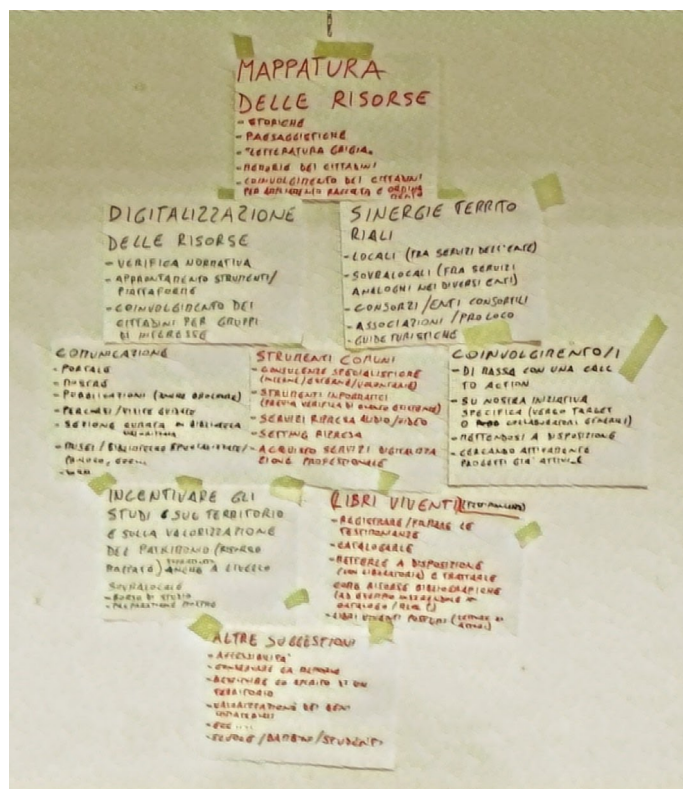 MAPPATURA
DELLE RISORSE
- STORICHE
- PAESAGGISTICHE
- "LETTERATURA GRIGIA"
- MEMORIE DEI CITTADINI
- COINVOLGIMENTO DEI CITTADINI
PER RACCOLTA E ORDINA
MENTO
DIGITALIZZAZIONE
DELLE RISORSE
- VERIFICA NORMATIVA
- APPRONTAMENTO STRUMENTI/
PIATTAFORME
- COINVOLGIMENTO DEI
CITTADINI PER GRUPPI
DI INTERESSE
SINERGIE TERRITO
RIALI
- LOCALI (FRA SERVIZI DELL'ENTE)
- SOVRALOCALI (FRA SERVIZI
ANALOGHI NEI DIVERSI ENTI)
- CONSORZI/ENTI CONSORTILI
- ASSOCIAZIONI/PRO LOCO
- GUIDE TURISTICHE
COMUNICAZIONE
- PORTALE
- MOSTRE
- PUBBLICAZIONI (ANCHE
- PERCORSI/VISITE GUIDATE
- SEZIONE CURATA IN BIBLIOTECA
- MUSEI/BIBLIOTECHE SPECIALIZZATE/
STRUMENTI COMUNI
- CONSULENZE SPECIALISTICHE
(INTERNE/ESTERNE/VOLONTARIE)
- STRUMENTI INFORMATICI
(PREVIA VERIFICA DI QUANTO ESISTENTE)
- SERVIZI RIPRESA AUDIO/VIDEO
- SETTING RIPRESA
- ACQUISTO SERVIZI DIGITALIZZA
ZIONE PROFESSIONALE
COINVOLGIMENTO/I
- DI MASSA CON UNA CALL
TO ACTION
- SU NOSTRA INIZIATIVA
SPECIFICA (VERSO TARGET
O COLLABORATORI GENERALI)
- METTENDOSI A DISPOSIZIONE
- CERCANDO ATTIVAMENTE
PROGETTI GIÀ ATTIVI
INCENTIVARE GLI
STUDI SUL TERRITORIO
E SULLA VALORIZZAZIONE
DEL PATRIMONIO (RISORSE
MAPPATE) ANCHE A LIVELLO
SOVRALOCALE
- BORSE DI STUDIO
- PREPARAZIONE MOSTRE
LIBRI VIVENTI
- REGISTRARE/FILMARE LE
TESTIMONIANZE
- CATALOGARLE
- METTERLE A DISPOSIZIONE
(CON LIBERATORIA) E TRATTARLE
COME RISORSE BIBLIOGRAFICHE
(AD ESEMPIO INSERENDOLE IN
CATALOGO
- LIBRI VIVENTI POSTUMI (LETTURE DI
ALTRE SUGGESTIONI
- ACCESSIBILITÀ
- CONSERVARE LA MEMORIA
- LO SPIRITO DI UN
TERRITORIO
- VALORIZZAZIONE DEI BENI
- SCUOLE/BAMBINI/STUDENTI